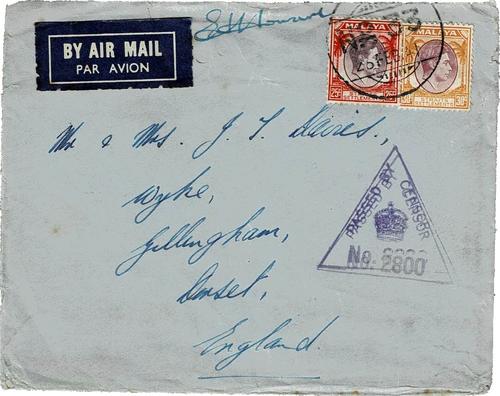 BY AIR MAIL
PAR AVION
MALAYA
MALAYA
25c
SETTLEMENTS
30c
STRAITS
SETTLEMENTS
30c
Mr & Mrs. J. T. Davies,
Wyke,
Gillingham,
Dorset,
England.
PASSED BY CENSOR
No. 2800